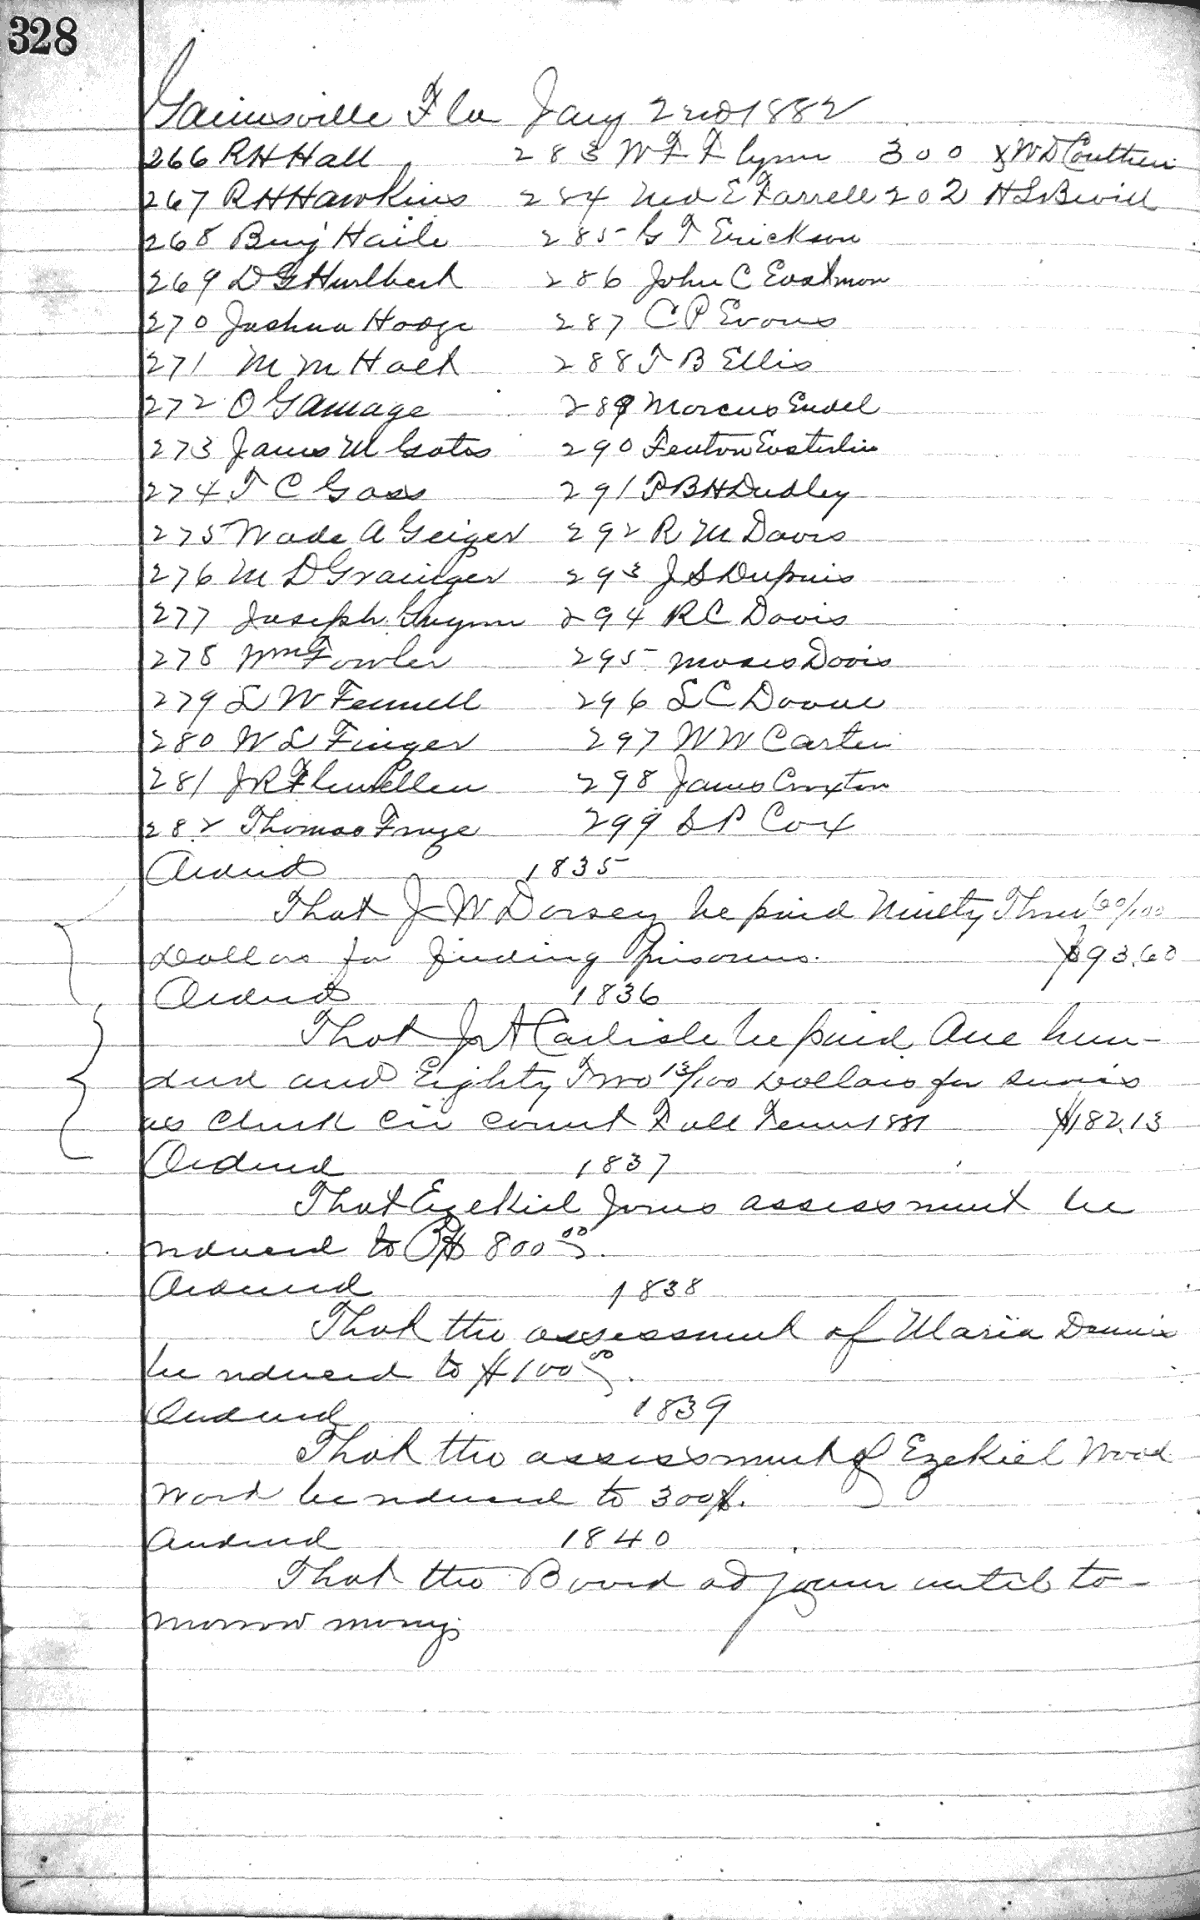 328
Gainesville Fla Jany 2nd 1882
266 R H Hall 283 W F Flynn 300 W D Coulthen
267 R H Hawkins 284 Ned E Farrell 202 H L Bevill
268 Benj Haile 285 G T Erickson
269 D G Hurlbert 286 John C Eastmon
270 Joshua Hodge 287 C P Evans
271 M M Hoelt 288 T B Ellis
272 O Gamage 289 Marcus Endel
273 James M Gates 290 Fenton Easterlin
274 T C Gass 291 P B H Dudley
275 Wade A Geiger 292 R M Davis
276 M D Grainger 293 J S Dupuis
277 Joseph Gwynn 294 R C Davis
278 Wm Fowler 295 Moses Davis
279 L W Fennell 296 L C Doane
280 W L Finger 297 W W Carter
281 J R Flewellen 298 James Croxton
282 Thomas Frye 299 S P Cox
Ordered 1835
That J W Dorsey be paid Ninety Three 60/100
Dollars for finding Prisoners. $93.60
Ordered 1836
That J A Carlisle be paid One hun-
dred and Eighty Two 13/100 Dollars for services
as Clerk Cir Court Fall Term 1881 $182.13
Ordered 1837
That Ezekiel Jones assessment be
reduced to $800 00.
Ordered 1838
That the assessment of Maria Dennis
be reduced to $100 00.
Ordered 1839
That the assessment of Ezekiel Wood
Work be reduced to 300$.
Ordered 1840
That the Board adjourn until to-
morrow morng